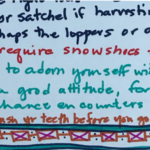 or satchel if harvestin
haps the loppers or
require snowshoes
to adorn yourself wi
a good attitude, for
chance encounters
ush yr teeth before you go